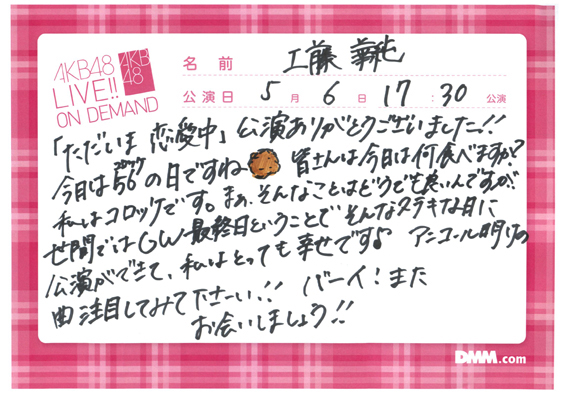 AKB48
LIVE!!
ON DEMAND
AKB
48
名前 工藤 華純
公演日 5月 6日 17:30 公演
「ただいま 恋愛中」公演ありがとうございましたっ!!
コロッケ
今日は56の日ですね 皆さんは今日は何食べますか?
私はコロッケです。まぁ、そんなことはどうでも良いんですが!!
世間ではGW最終日ということで そんなステキな日に
公演ができて、私はとっても幸せです♪ アンコール明けの
曲注目してみて下さーい!! バーイ!また
お会いしましょう!!
DMM.com